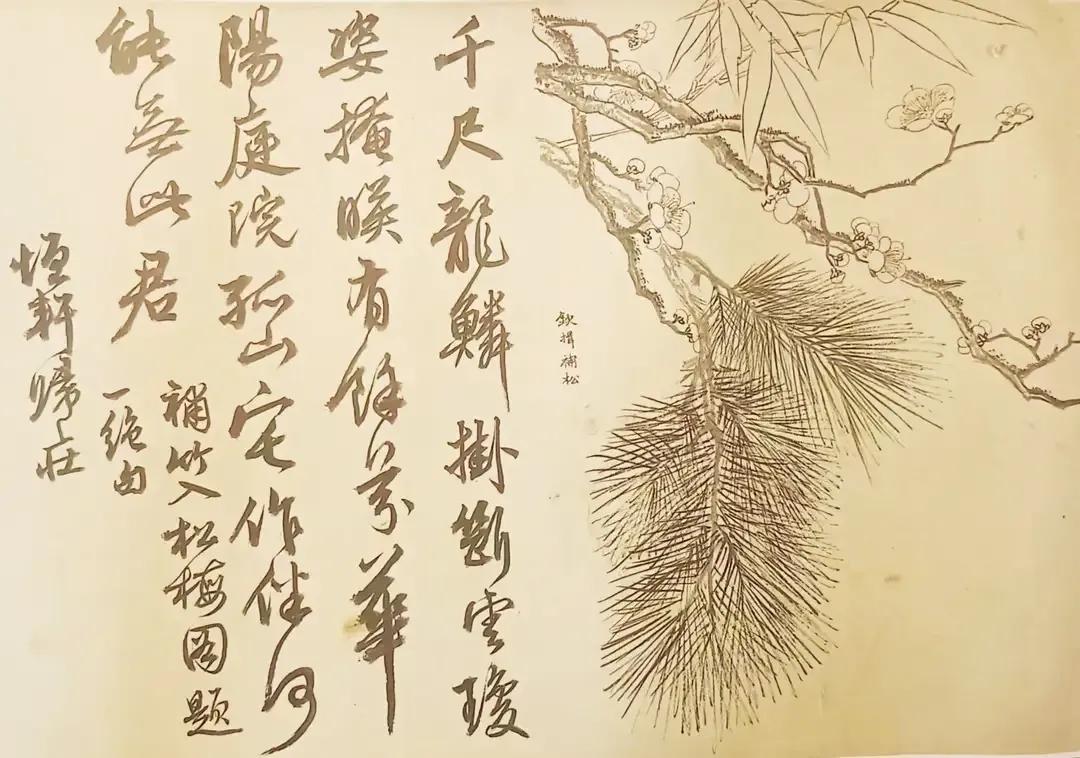 欽揖補松
千尺龍鱗掛斷雲瓊
姿掩暎有餘芬華
陽庭院孤山宅作伴何
能無此君
補竹入松梅圖題
一絕句
恒軒歸庄